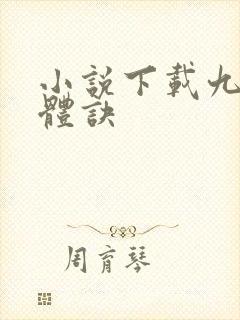 小說下載九
體訣
周育琴